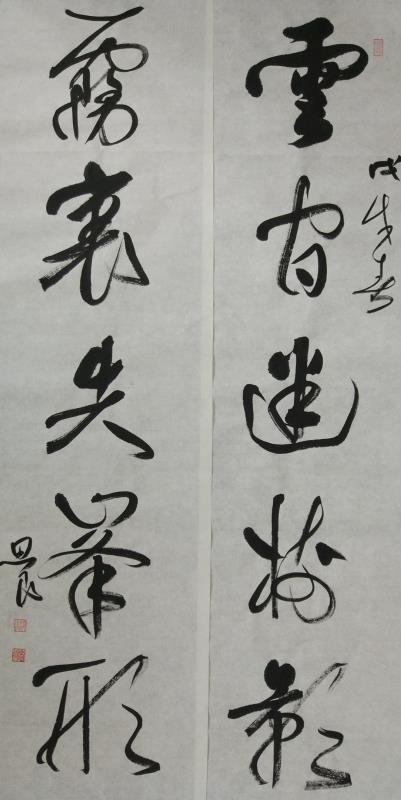 戊戌春
雲間迷樹影
霧裏失峯形